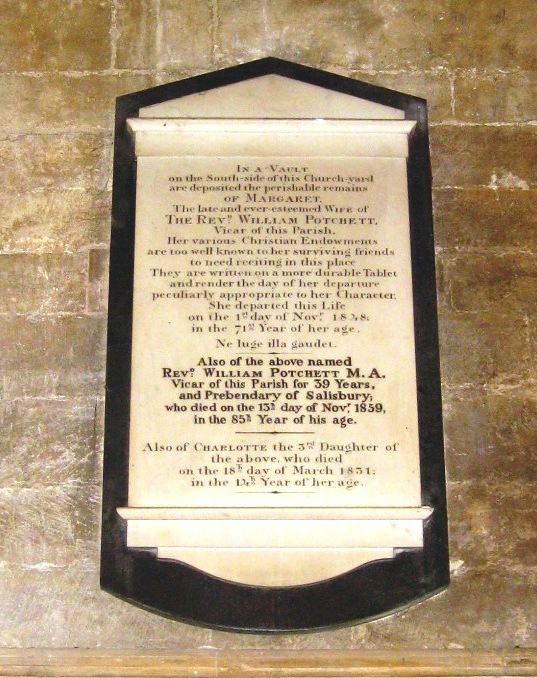 IN A VAULT
on the South-side of this Church-yard
are deposited the perishable remains
OF MARGARET,
The late and ever-esteemed WIFE of
THE REVD. WILLIAM POTCHETT,
VICAR of this PARISH.
HER various CHRISTIAN Endowments
are too well known to her surviving friends
to need reciting in this place
THEY are written on a more durable TABLET
and render the day of her departure
peculiarly appropriate to her CHARACTER,
SHE departed this LIFE
on the 1st day of NOVR. 1848;
in the 71st YEAR of her age.
Ne luge illa gaudet.
ALSO of the above named
REVD. WILLIAM POTCHETT M.A.
VICAR of this PARISH for 39 YEARS,
and PREBENDARY of SALISBURY;
who DIED on the 13th day of NOVR. 1859,
in the 85th YEAR of his age.
ALSO of CHARLOTTE the 3rd DAUGHTER of
the above, who died
on the 18th day of MARCH 1831;
in the YEAR of her age.